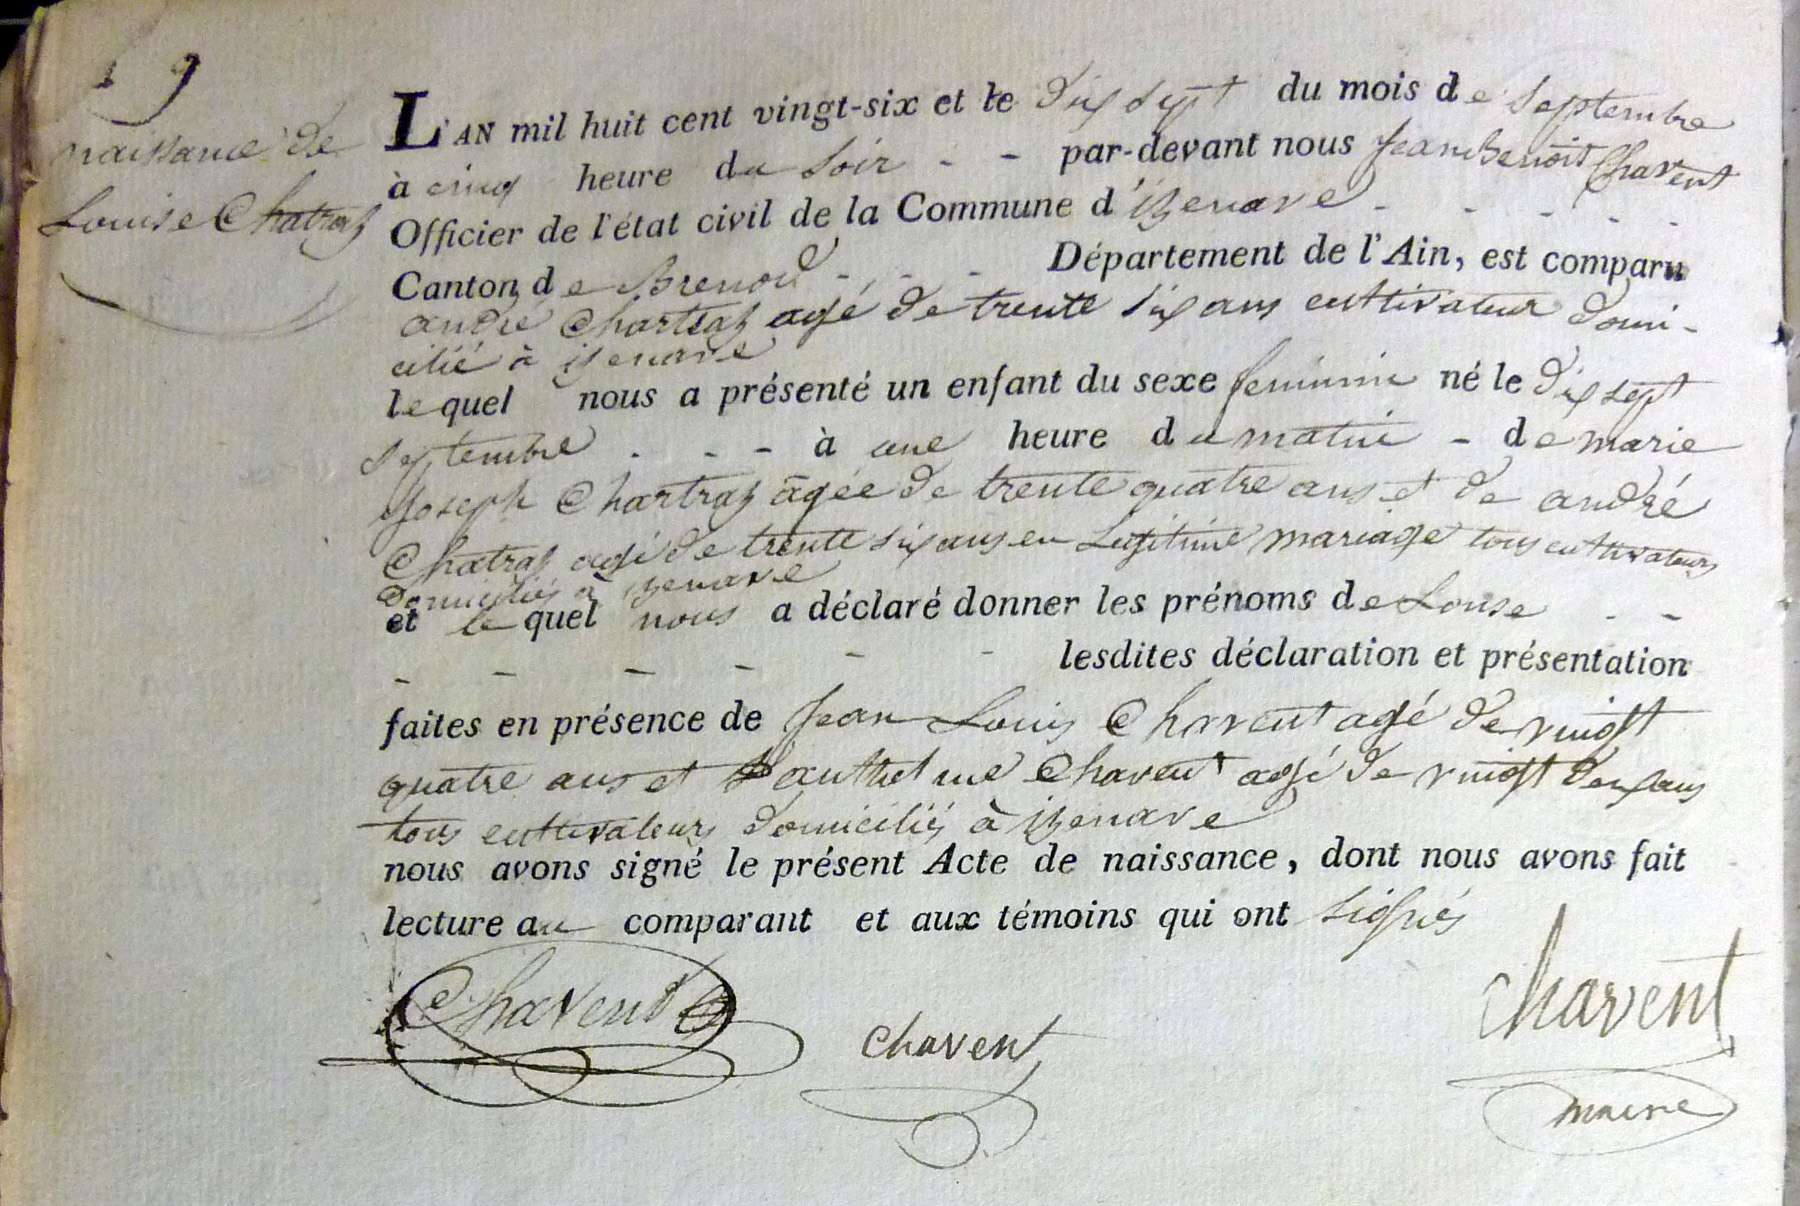 19
naissance de
Louise Chatraz
L'AN mil huit cent vingt-six et le dix sept du mois de Septembre
à cinq heure du Soir - - par-devant nous Jean Benoit Chavent
Officier de l'état civil de la Commune d'izenave - - - - -
Canton de Brenod - - - Département de l'Ain, est comparu
andré Chartraz agé de trente six ans cultivateur domi-
cilié à izenave
lequel nous a présenté un enfant du sexe feminin né le dix sept
Septembre - - - à une heure du matin - de marie
Joseph Chartraz agée de trente quatre ans et de andré
Chatraz agé de trente six ans en Legitime mariage tous cultivateurs
domiciliés à izenave
et le quel nous a déclaré donner les prénoms de Louise - -
- - - - - - lesdites déclaration et présentation
faites en présence de Jean Louis Chavent agé de vingt
quatre ans et d'anthelme Chavent agé de vingt deux ans
tous cultivateurs domiciliés à izenave
nous avons signé le présent Acte de naissance, dont nous avons fait
lecture au comparant et aux témoins qui ont signés
Chavent
chavent
chavent
maire